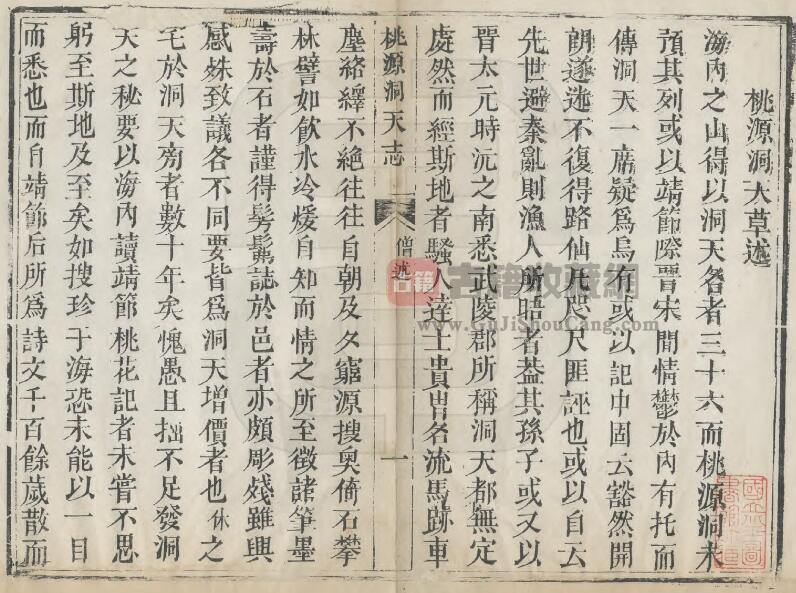 桃源洞天草述
海內之山得以洞天名者三十六而桃源洞未
預其列或以靖節際晋宋閒情鬱於內有托而
傳洞天一席疑爲烏有或以記中固云豁然開
朗遂迷不復得路仙凡咫尺匪誣也或以自云
先世避秦亂則漁人所晤者葢其孫子或又以
晋太元時沅之南悉武陵郡所稱洞天都無定
處然而經斯地者騷人達士貴胄名流馬跡車
桃源洞天志
僧述
一
塵絡繹不絕往往自朝及夕窮源搜奧倚石攀
林譬如飲水冷煖自知而情之所至徵諸筆墨
壽於石者謹得髣髴誌於邑者亦頗彫殘雖興
感殊致議各不同要皆爲洞天增價者也休之
宅於洞天旁者數十年矣愧愚且拙不足發洞
天之秘要以海內讀靖節桃花記者未嘗不思
躬至斯地及至矣如搜珍于海恐未能以一目
而悉也而自靖節后所爲詩文千百餘歲散而
古籍
古籍收藏網
www.GuJiShouCang.com